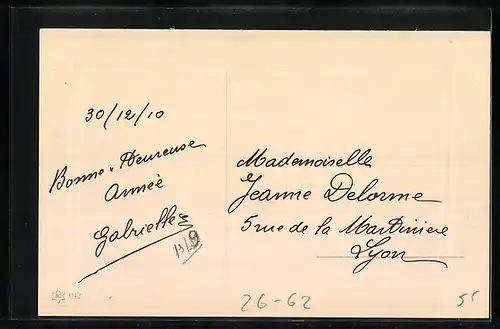 30/12/10
Bonne Heureuse
Année
Gabrielle
Mademoiselle
Jeanne Delorme
5 rue de la Martiniere
Lyon
26-62
55